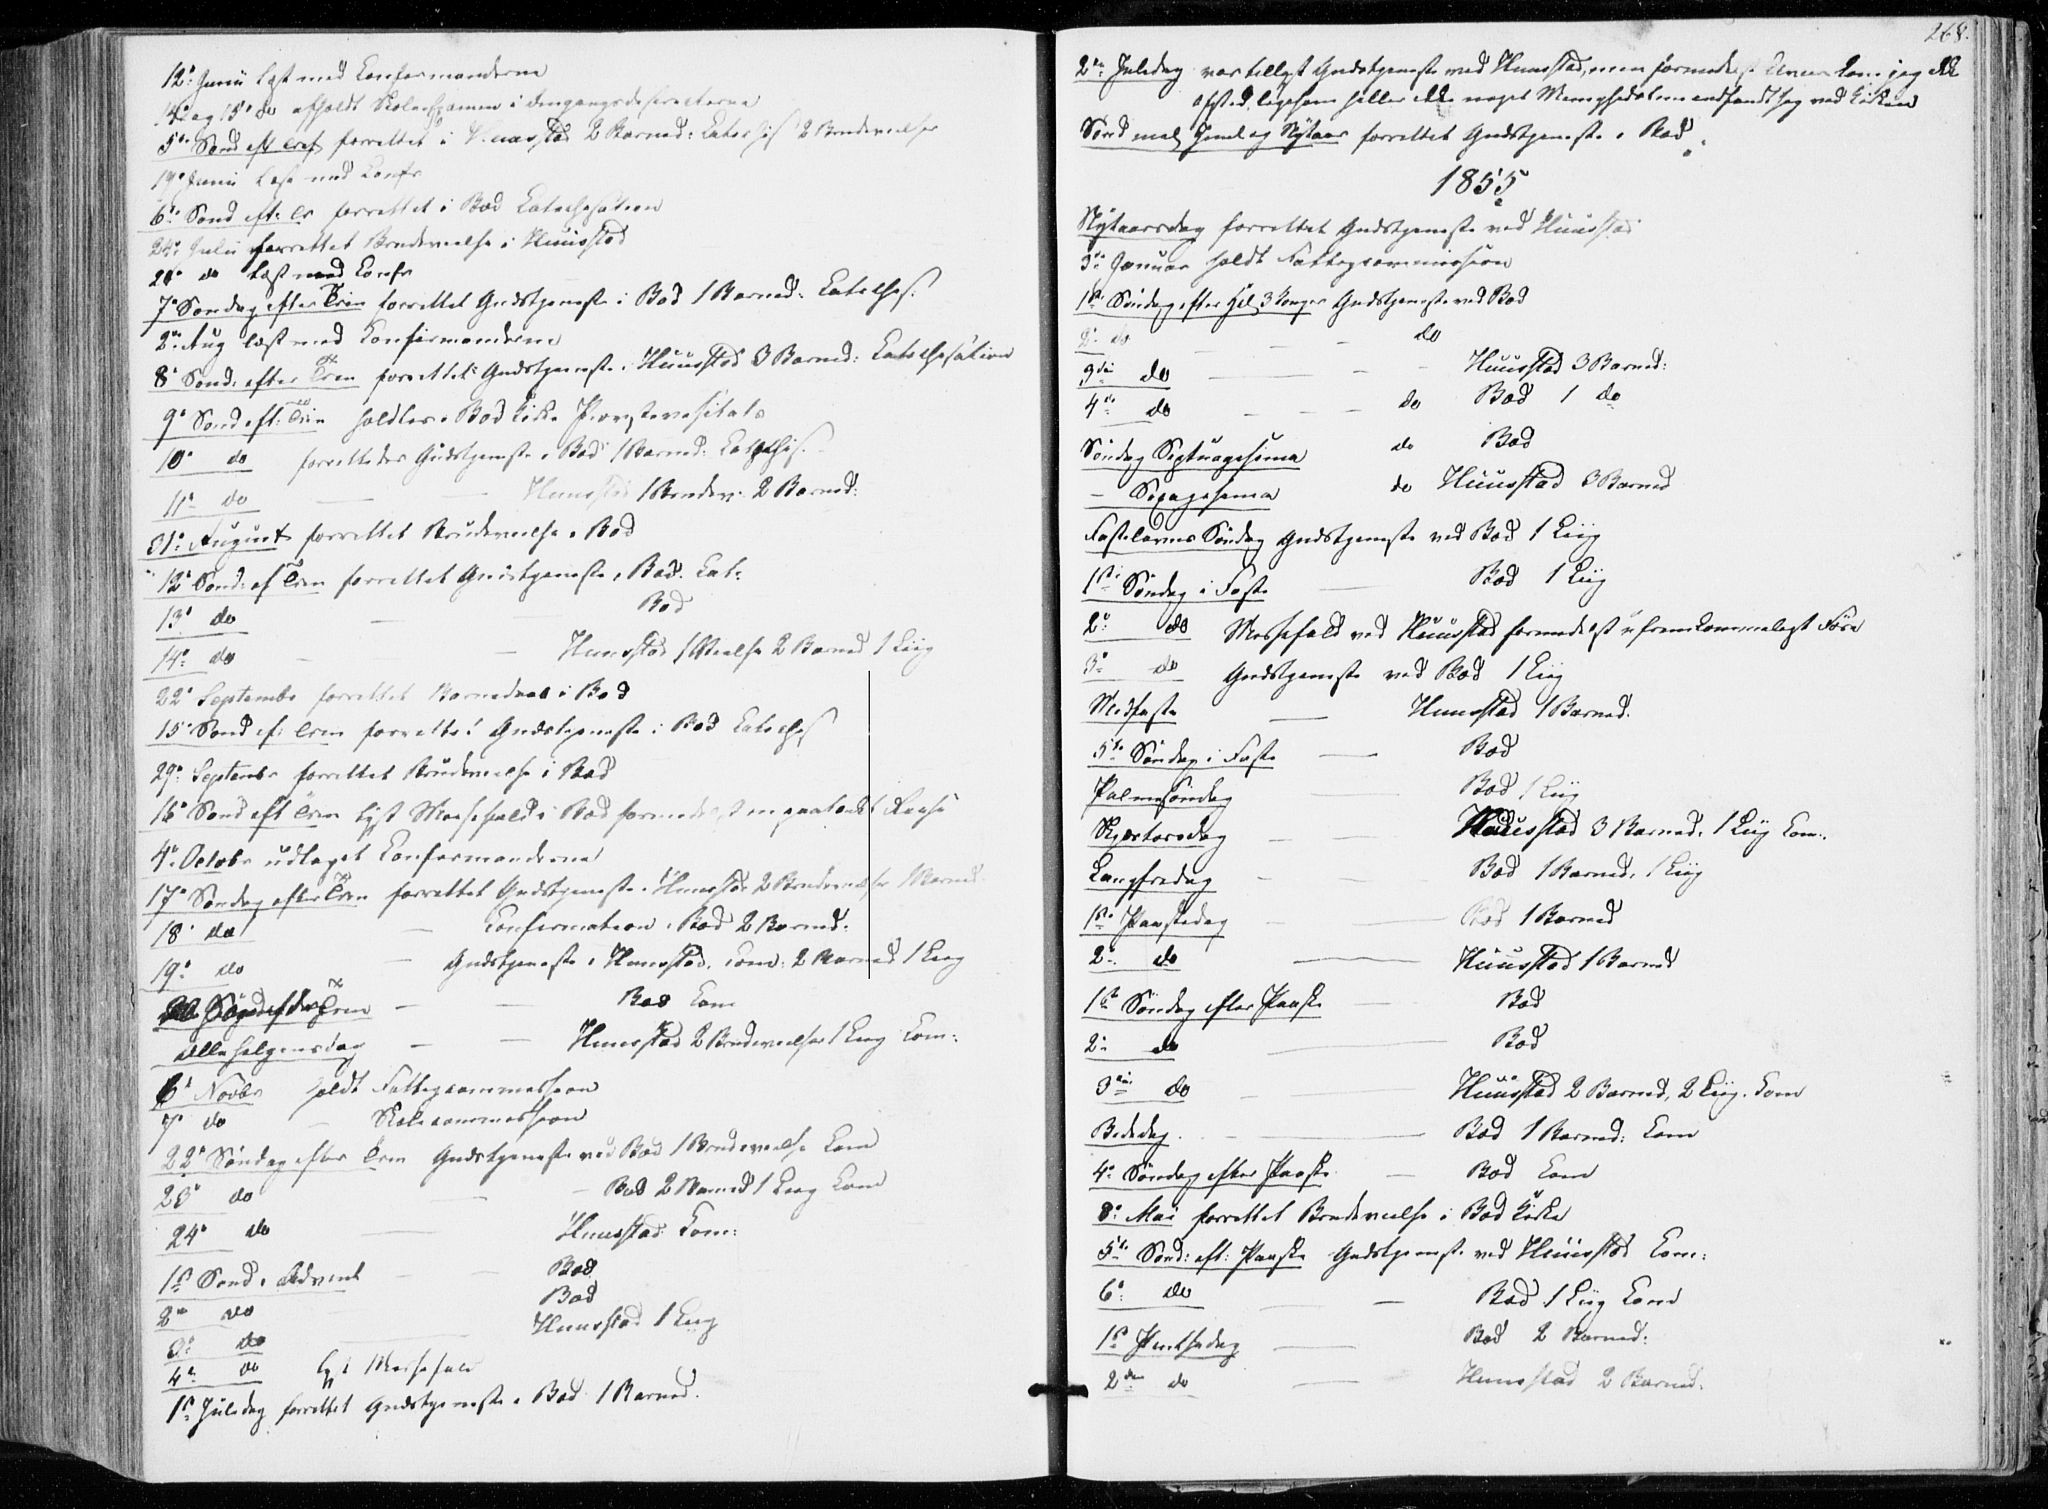 12te Junii læst med Confirmanderne
14 og 15de do afholdt Skoleexamen i
5te Sønd eft Tref forrettet i Huusstad 2 Barned: Catechis 2 Brudevielser
19de Junii læst med Conf
6te Sønd eft: Tr forrettet i Bod Catechisation
24de Julii forrettet Brudevielse i Huusstad
26de do læst med Conf
7de Søndag efter Trin forrettet Gudstjeneste i Bod 1 Barned: Cateches:
2den Aug læst med Confirmanderne
8de Sønd: efter Trin forrettet Gudstjeneste i Huusstad 3 Barned: Catechisation
9de Sønd eft: Trin holdtes i Bod Kirke Provstevisitats
10de do forrettedes Gudstjeneste i Bod 1 Barned: Catechis:
11te do — — Huusstad 1 Brudev: 2 Barned:
31te August forrettet Brudevielse i Bod
12te Sønd: ef Trin forrettet Gudstjeneste i Bod. Cat:
13de do — Bod
14de do — — Huusstad 1 Vielse 2 Barned 1 Liig
22de Septembr forrettet Barnedaab i Bod
15de Sønd ef: Trin forrettet Gudstjeneste i Bod Cateches
29de Septembr forrettet Brudevielse i Bod
16de Sønd eft Trin lyst Messefald i Bod formedelst en paatænkt Reise
4de Octobr udtaget Confirmanderne
17de Søndag efter Trin forrettet Gudstjeneste i Huusstad 2 Brudevielser 1 Barned
18de do — Confirmation i Bod 2 Barned:
19de do — Gudstjeneste i Huusstad. Com: 2 Barned 1 Liig
Trin — — Bod Com
Allehelgensdag — — Huusstad 2 Brudevielser 1 Liig Com:
6te Novbr holdt Fattigcommission
7de do — Skolecommission
22de Søndag efter Trin Gudstjeneste ved Bod 1 Brudevielse Com
23de do — — Bod 2 Barned 1 Liig Com
24de do — Huusstad Com:
1ste Sønd i Advent — — Bod
2den do Bod
3die do — Huusstad 1 Liig
4de do lyst Messefald
1ste Juledag forrettet Gudstjeneste i Bod 1 Barned.
268.
2den Juledag var tillyst Gudstjeneste ved Huusstad, men formedelst kom jeg ikke
afsted, ligesom heller ikke noget Menighedslem indfandt sig ved Kirken
Sønd mel Juul og Nytaar forrettet Gudstjeneste i Bod
1855
Nytaarsdag forrettet Gudstjeneste ved Huusstad
3die Januar holdt Fattigcommission
1ste Søndag efter Hel 3 Konger Gudstjeneste ved Bod
2den do — — — do
3die do — — — Huusstad 3 Barned:
4de do — — — do Bod 1 do
Søndag Septuagesima do Bod
— Sexagesima do Huusstad 3 Barned
Fastelavns Søndag Gudstjeneste ved Bod 1 Liig
1ste Søndag i Faste — Bod 1 Liig
2den do Messefald ved Huusstad formedelst ufremkommeligt Føre
3die do Gudstjeneste ved Bod 1 Liig
Midfaste — Huusstad 1 Barned.
5te Søndag i Faste — Bod
Palmesøndag — Bod 1 Liig
Skjærtorsdag — — Huusstad 3 Barned. 1 Liig Com:
Langfredag — — Bod 1 Barned. 1 Liig
1ste Paaskedag — — Bod 1 Barned
2den do — Huusstad 1 Barned
1ste Søndag efter Paaske — Bod
2den do — Bod
3die do — — Huusstad 2 Barned, 2 Liig. Com
Bededag. — — Bod 1 Barned: Com
4de Søndag efter Paaske — Bod Com
8de Mai forrettet Brudevielse i Bod Kirke
5te Sønd: eft: Paaske Gudstjeneste ved Huusstad Com:
6te do — — Bod 1 Liig Com
1ste Pintsedag — Bod 2 Barned:
2den do — Huusstad 2 Barned: